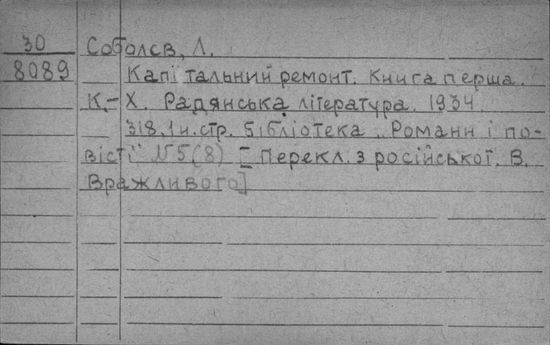 30
8089
Соболєв, Л.
Капітальний ремонт. Книга перша.
К.-Х. Радянська література. 1934.
318,1н.стр. Бібліотека „Романи і по-
вісті" №5(8) [Перекл. з російської. В.
Вражливого]